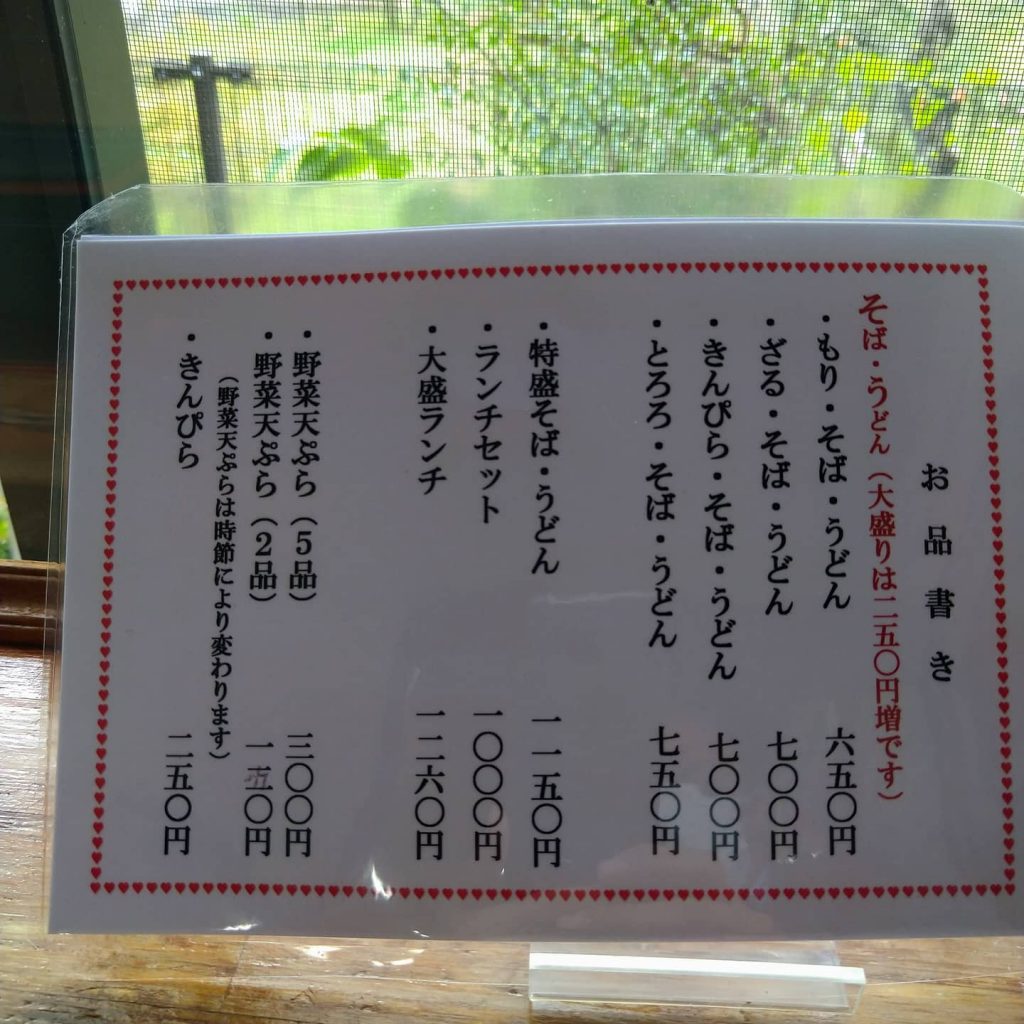 お品書き
そば・うどん（大盛りは二五〇円増です）
・もり・そば・うどん 六五〇円
・ざる・そば・うどん 七〇〇円
・きんぴら・そば・うどん 七〇〇円
・とろろ・そば・うどん 七五〇円
・特盛そば・うどん 一一五〇円
・ランチセット 一〇〇〇円
・大盛ランチ 一二六〇円
・野菜天ぷら（５品） 三〇〇円
・野菜天ぷら（２品） 一五〇円
（野菜天ぷらは時節により変わります）
・きんぴら 二五〇円